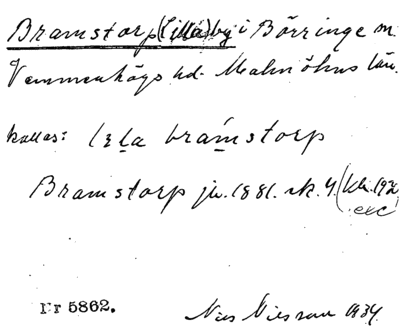 Bramstorp (Lilla) by i Börringe sn.
Vemmenhögs hd. Malmöhus län.
kallas: lɛla bramstorp
Bramstorp ju. 1881. sk. 4. (kh. 192
exc
Nr 5862. Nils Nilsson 1934